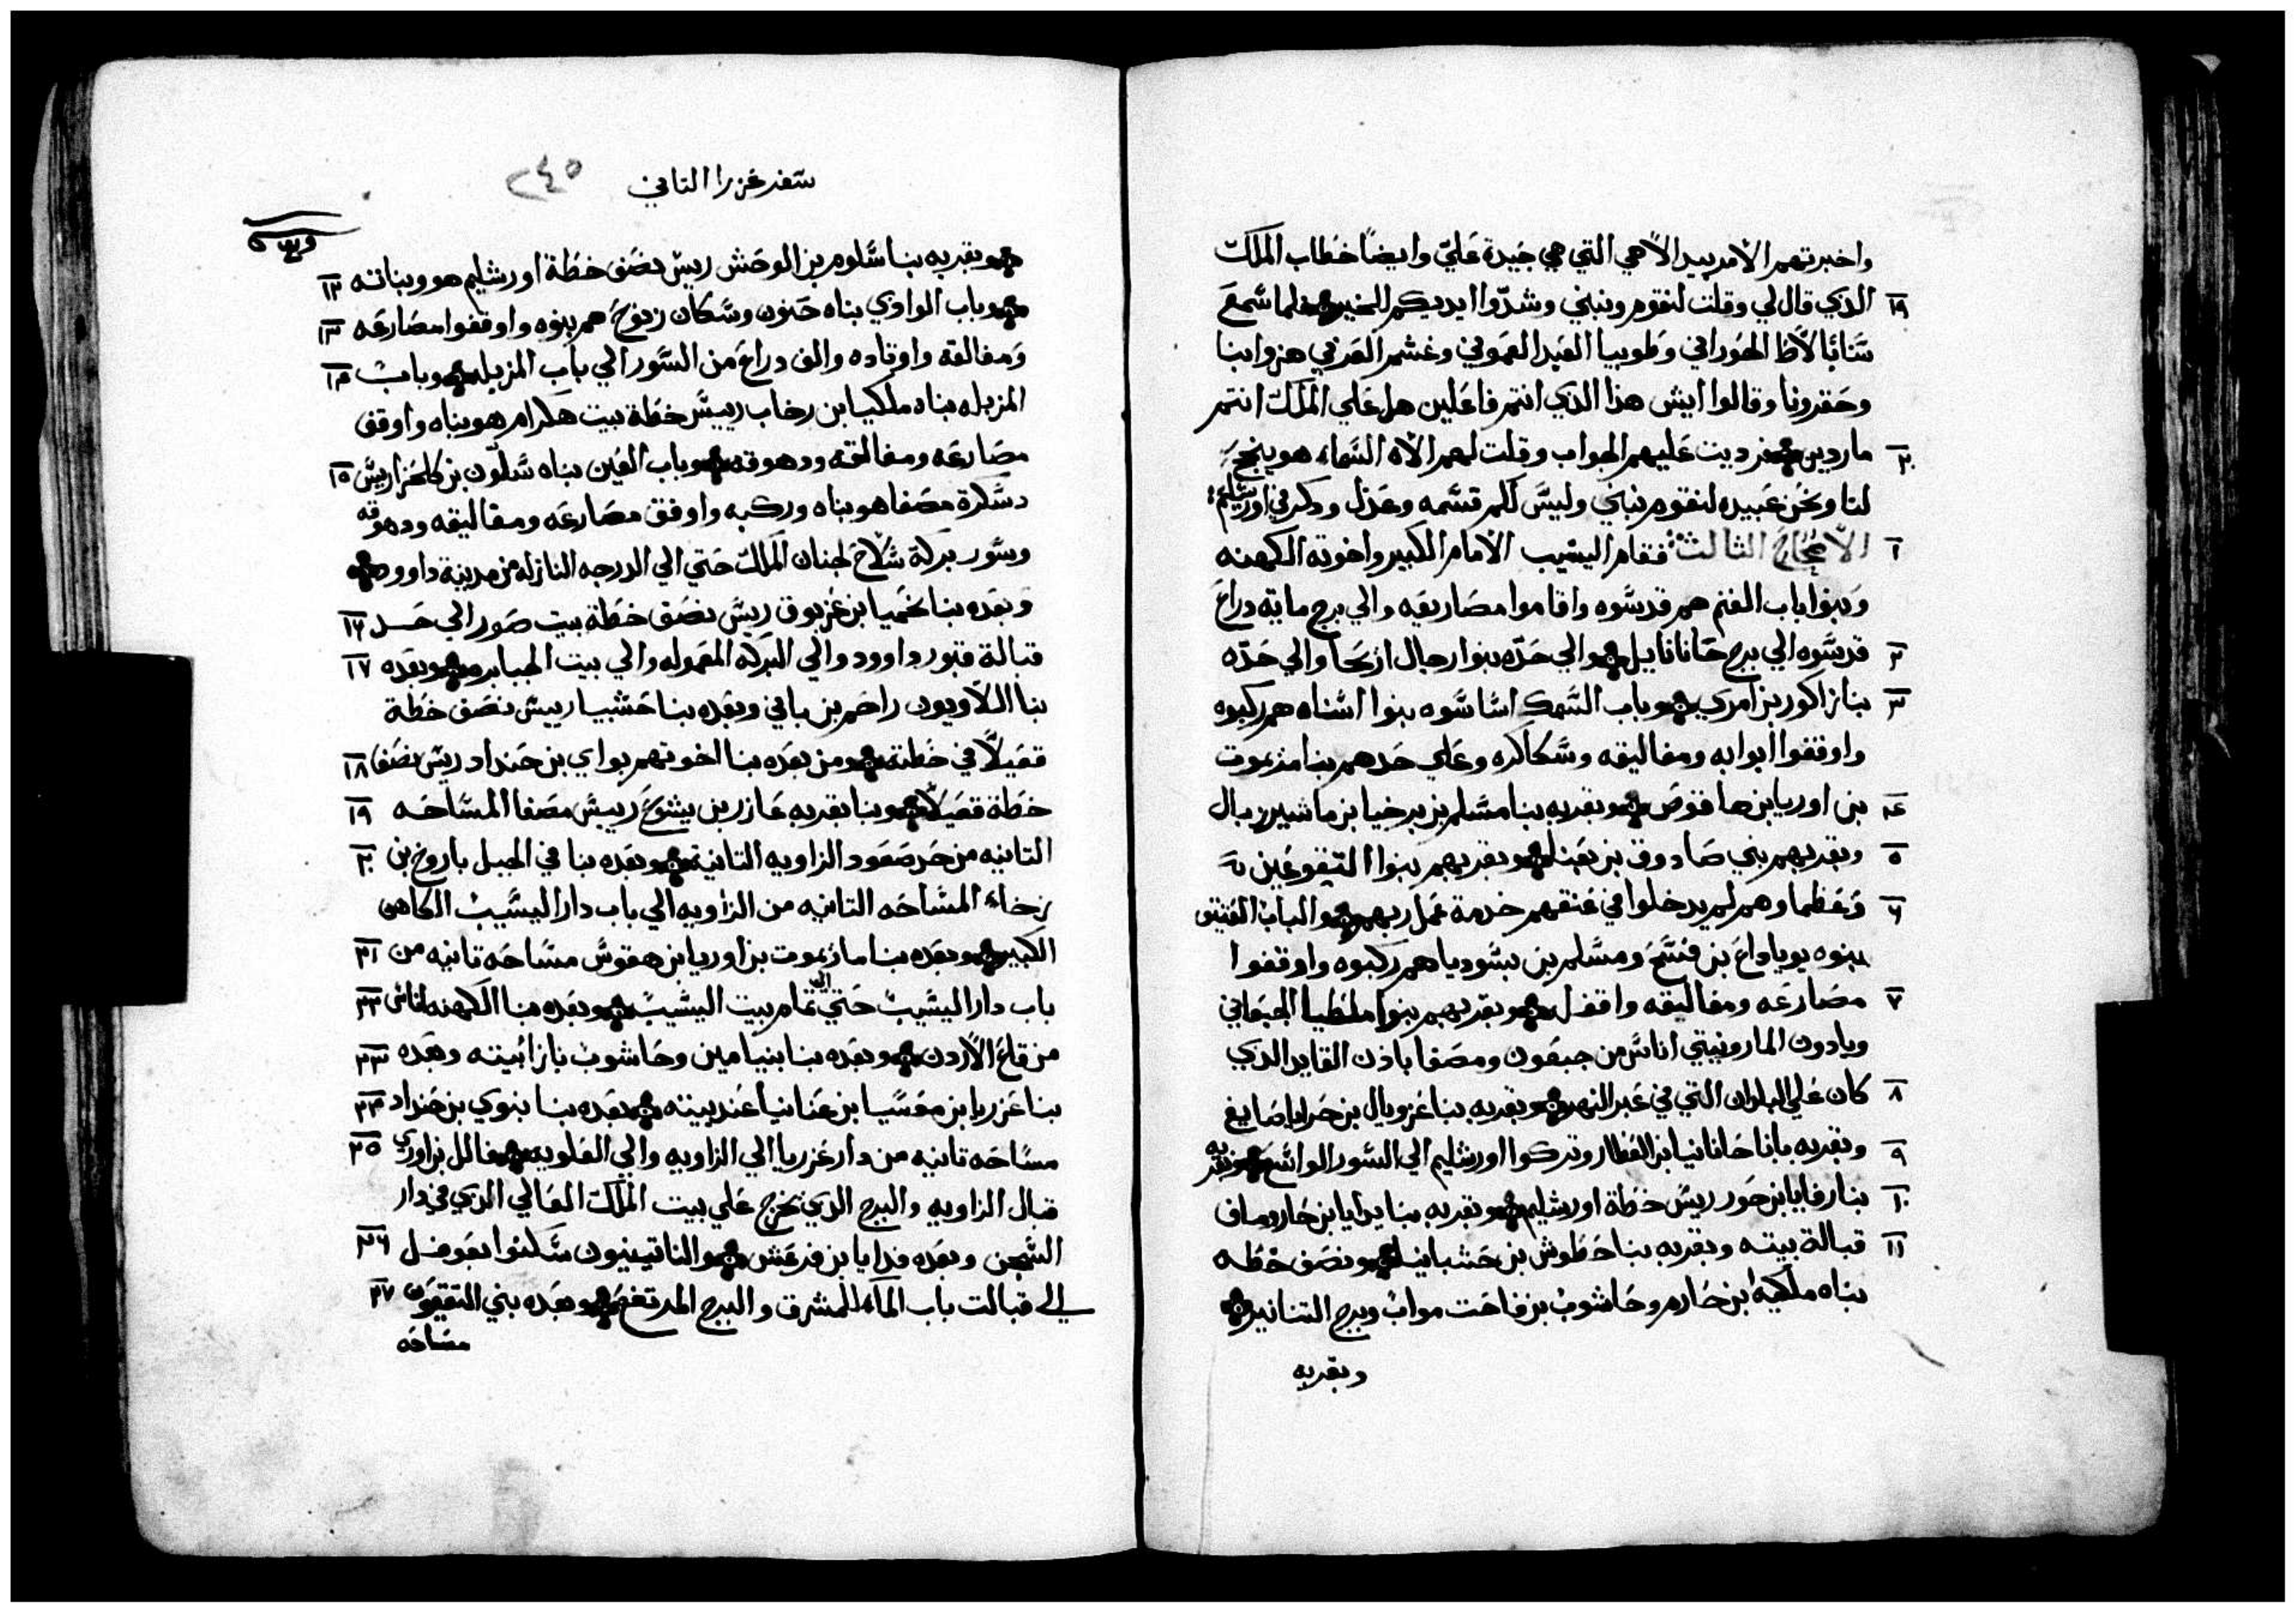 واخبرتهم الامر بيد الاهي التي هي جيدة علي وايضًا خطاب الملك
١٩ الذي قال لي وقلت لنقوم ونبني وشدّوا ايديكم للخير فلما سمع
سنابالاط الحوراني وطوبيا العبد العموني وغشم العربي هزوا بنا
وحقرونا وقالوا ايش هذا الذي انتم فاعلين هل علي الملك انتم
٢٠ ماردين فرديت عليهم الجواب وقلت لهم الاه السماء هو ينجح
لنا ونحن عبيده لنقوم نبني وليس لكم قسمه وعدل وذكر في اورشليم
١ الاصحاح الثالث فقام اليشيب الامام الكبير واخوته الكهنه
وبنوا باب الغنم هم قدسوه واقاموا مصاريعه والي برج مايه دراع
٢ قدسوه الي برج حانانايل والي حدّه بنوا رجال اريحا والي حدّه
٣ بنا زاكور بن امري وباب السمك اساسوه بنوا اسناه هم ركبوه
واوقفوا ابوابه ومغاليقه وسكاكره وعلي حدهم بنا مذيموت
٤ بن اوريا بن هاقوص وبقربه بنا مسلم بن برخيا بن ماشيزبال
٥ وبقربهم بني صادوق بن بعنا وبقربهم بنوا التقوعين
٦ وعظماوهم لم يدخلوا في عنقهم خدمة عمل ربهم والباب العتيق
بنوه يوياداع بن فسح ومسلم بن بسوديا هم ركبوه واوقفوا
٧ مصارعه ومغاليقه واقفل وبقربهم بنوا ملطيا الجبعاني
ويادون الماروبيتي اناس من جبعون ومصفا باذن القايد الذي
٨ كان علي البلدان التي في عبر النهر وبقربه بنا عزويال بن حرايا صايغ
٩ وبقربه بانا حانانيا بن العطار وتركوا اورشليم الي السور الواسع وبقربه
١٠ بنا رفايا بن حور ريس خطة اورشليم وبقربه بنا يدايا بن حاروماف
١١ قبالة بيته وبقربه بنا حطوش بن حشبانيا ونصف خطه
بناه ملكيه بن حارم وحاشوب بن فاحت مواب وبرج التنانير
وبقربه
سفر عزرا التاني ٢٤٥
١٢ وبقربه بنا سلوم بن الوحش ريس نصف خطة اورشليم هو وبناته
١٣ وباب الوادي بناه حنون وسكان زنوح هم بنوه واوقفوا مصارعه
١٤ ومغالقه واوتاده والف دراع من السور الي باب المزبله وباب
المزبله بناه ملكيا بن رخاب رييس خطة بيت هكرام هو بناه واوقف
١٥ مصارعه ومغالقه ودهوقه وباب العين بناه سلون بن كلحزا ريس
دسكرة مصفا هو بناه وركبه واوقف مصارعه ومغاليقه ودهوقه
وسور بركة شلاح لجنان الملك حتي الي الدرجه النازله من مدينة داوود
١٦ وبعده بنا نحميا بن عزبوق ريس نصف خطة بيت صور الي حد
١٧ قبالة قبور داوود والي البركه المعموله والي بيت الجبابره وبعده
بنا اللاويون راحم بن باني وبعده بنا حشبيا رييس نصف خطة
١٨ قعيلا في خطته ومن بعده بنا اخوتهم بواي بن حنداد ريس نصف
١٩ خطة قعيلا وبنا بقربه عازر بن يشوع رييس مصفا المساحه
٢٠ التانيه من حد صعود الزاويه التانيه وبعده بنا في الجبل باروخ بن
زخاء المساحه التانيه من الزاويه الي باب دار اليشيب الكاهن
٢١ الكبير وبعده بنا مازيموت بن اوريا بن هقوس مساحه تانيه من
٢٢ باب دار اليشيب حتي الي تمام بيت اليشيب وبعده بنا الكهنه اناس
٢٣ من قاع الاردن وبعده بنا بنيامين وحاشوب بازا بيته وبعده
٢٤ بنا عزريا بن معسيا بن عنانيا عند بيته وبعده بنا بنوي بن حنداد
٢٥ مساحه تانيه من دار عزريا الي الزاويه والي العلويه فالل بن اوزي
قبال الزاويه والبرج الذي يخرج علي بيت الملك العالي الذي في دار
٢٦ السجن وبعده فدايا بن فرعش والناتينيون سكنوا بعوفل
٢٧ الي قبالت باب الماء للمشرق والبرج المرتفع وبعده بني التقيعون
مساحه